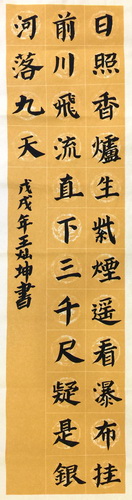 日照香爐生紫煙遥看瀑布挂
前川飛流直下三千尺疑是銀
河落九天
戊戌年王灿坤書